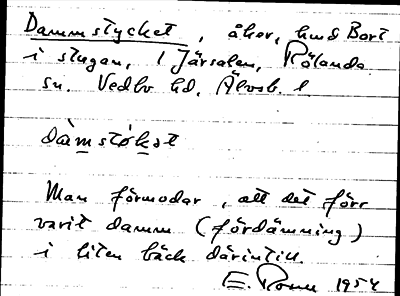 Dammstycket, åker, hus Bort
i stugan, 1 Järsalen, Rölanda
sn. Vedbo hd, Älvsb. l
dàmstøkət
Man förmodar, att det förr
varit damm (fördämning)
i liten bäck därintill.
E. 1954